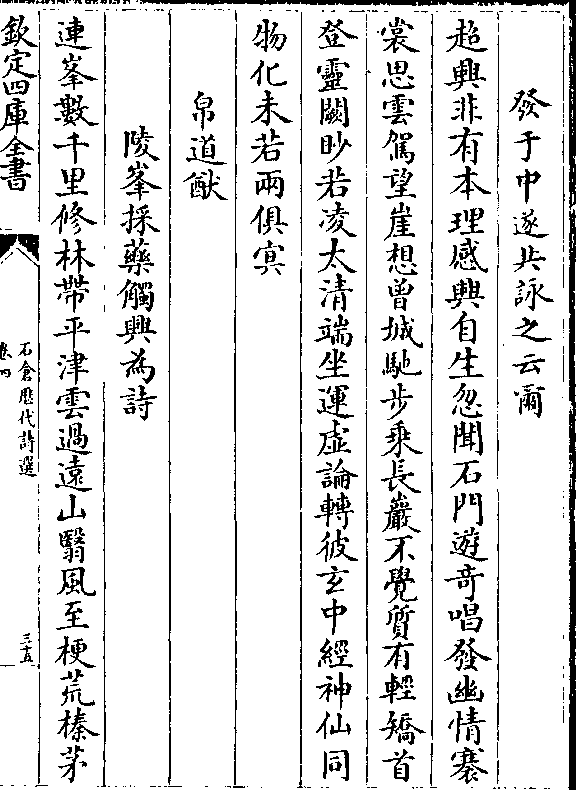 發于中遂共詠之云爾
超興非有本理感興自生忽聞石門遊竒唱發幽情褰
裳思雲駕望崖想曾城馳步乗長巖不覺質有輕矯首
登靈闕眇若凌太清端坐運虛論轉彼玄中經神仙同
物化未若兩俱㝠
帛道猷
陵峯採藥觸興為詩
連峯數千里修林帶平津雲過逺山翳風至梗荒榛茅
欽定四庫全書
石倉歴代詩選
卷四
三五